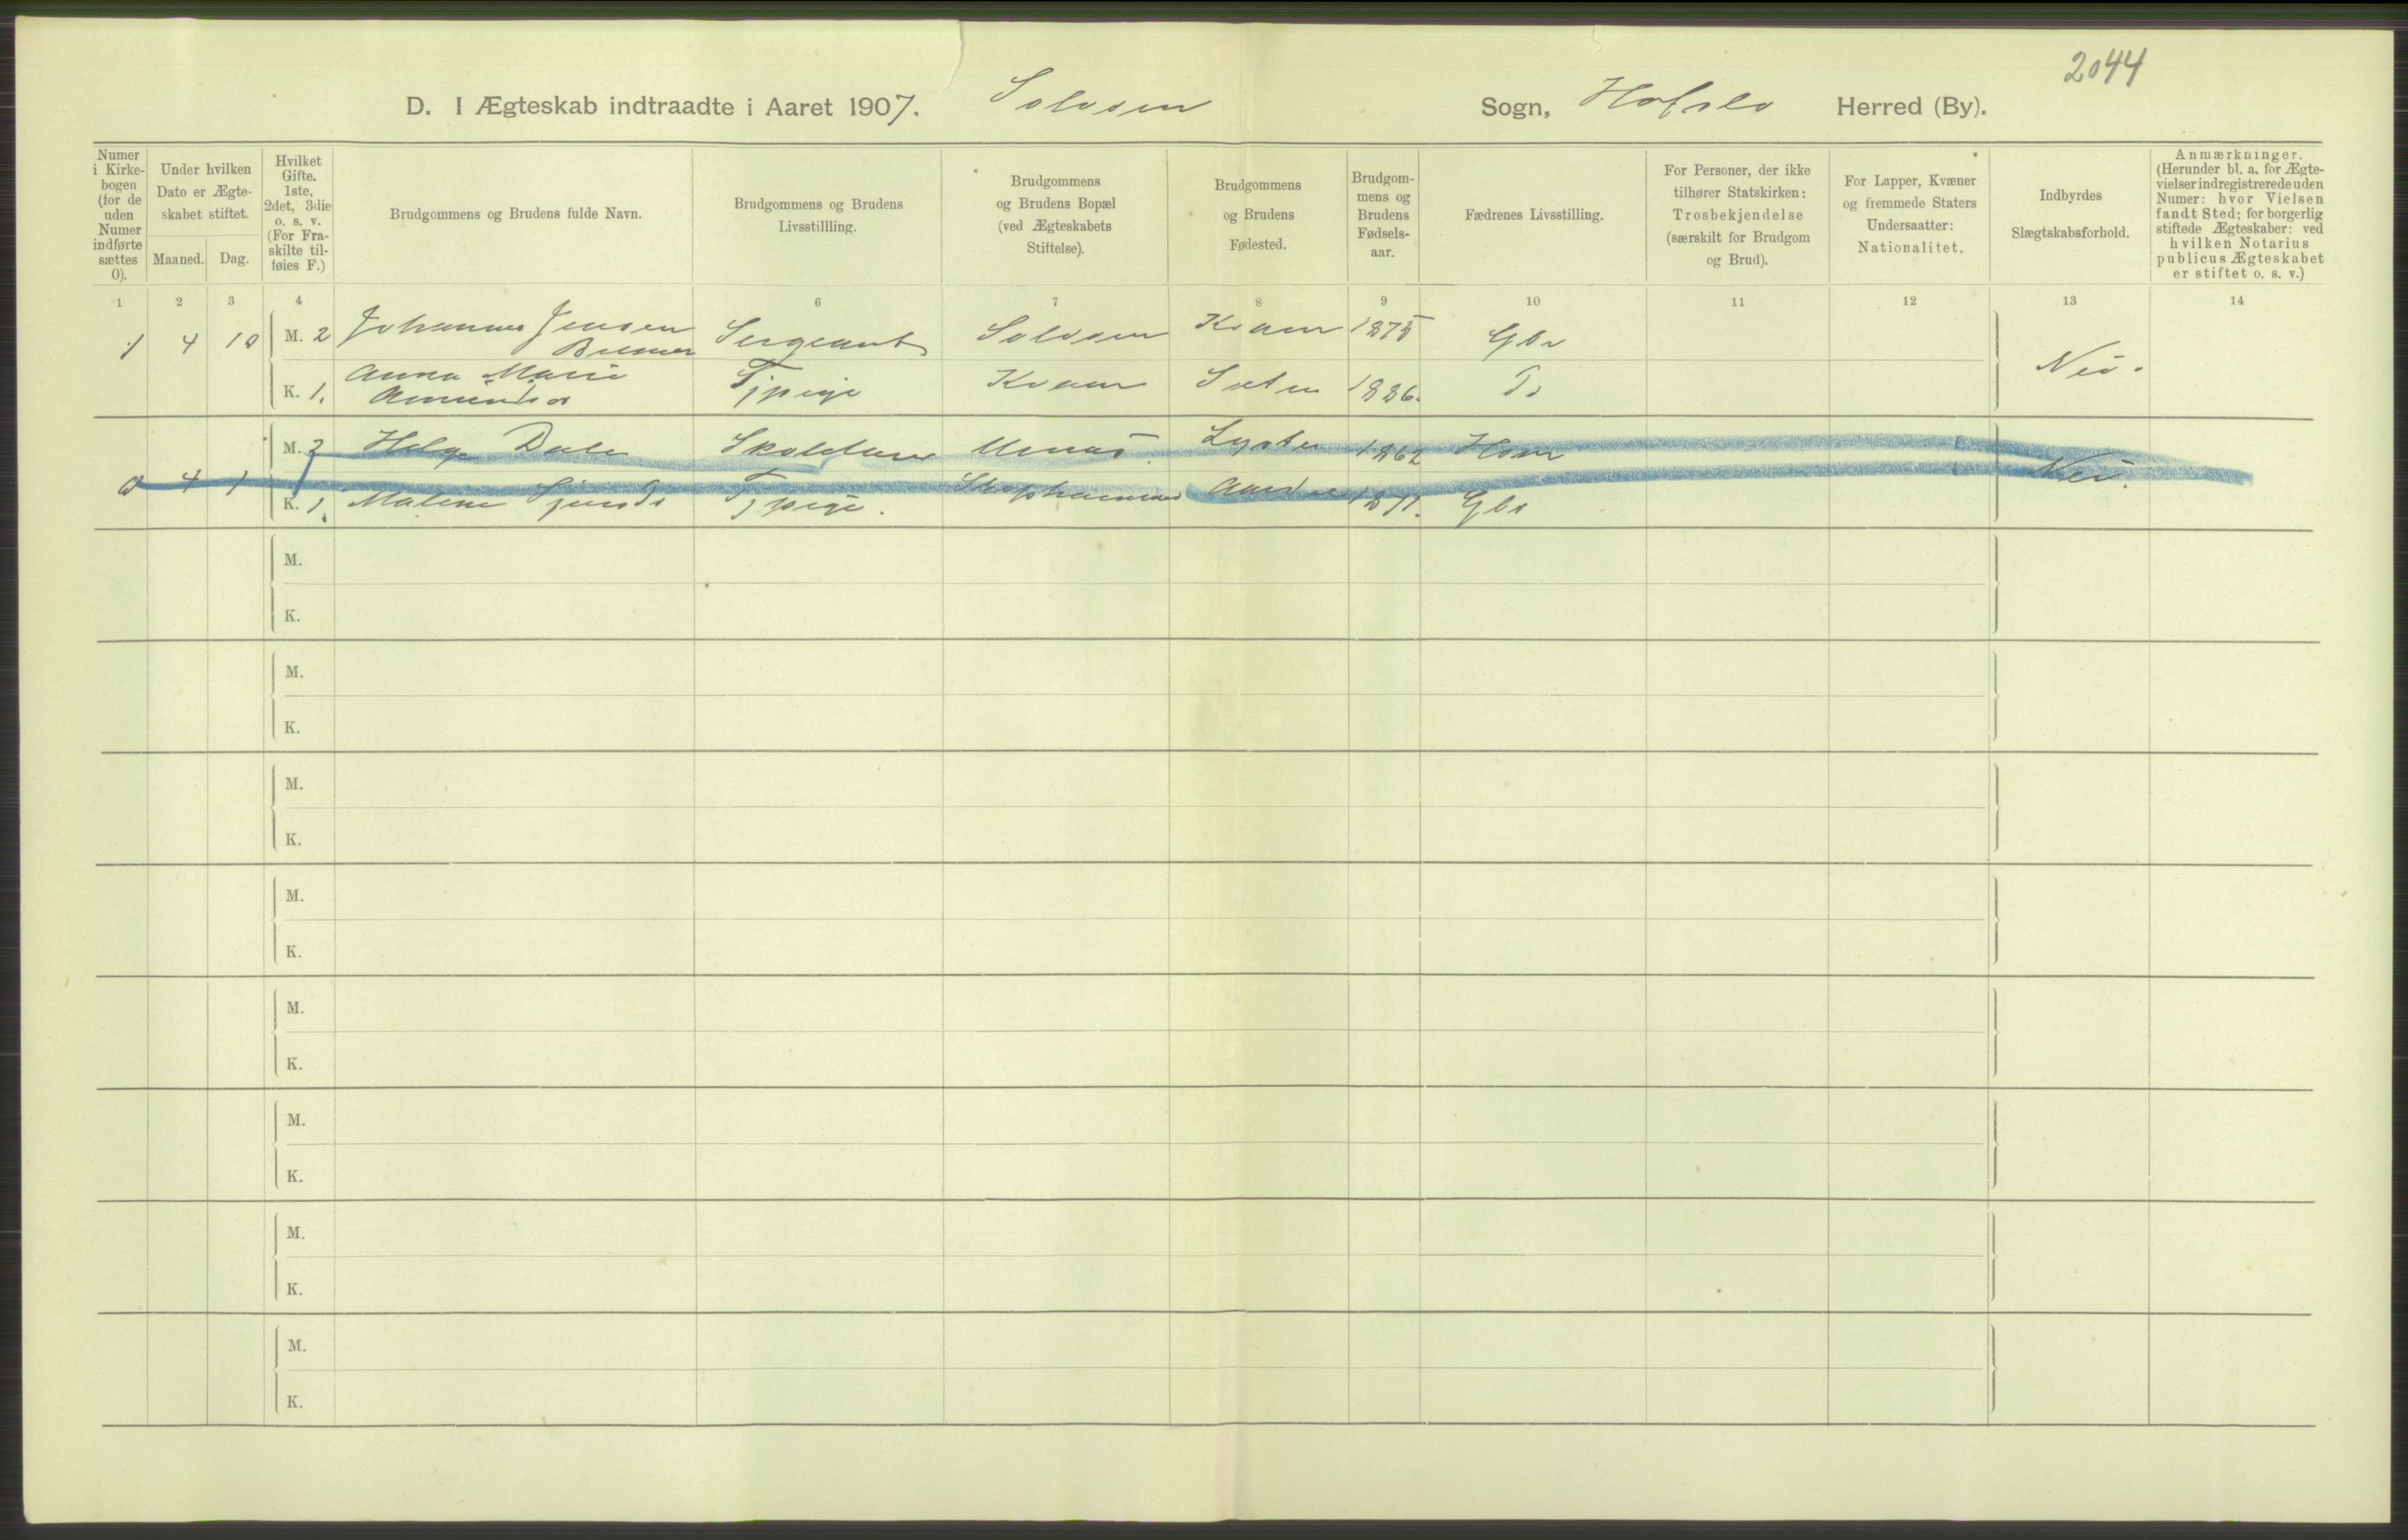 2044
D. I Ægteskab indtraadte i Aaret 1907. Solvorn Sogn, Hafslo Herred (By).
Numer i Kirkebogen (for de uden Numer indførte sættes 0).
Under hvilken Dato er Ægteskabet stiftet.
Maaned. Dag.
Hvilket Gifte. 1ste, 2det, 3die o. s. v. (For Fraskilte tilføies F.)
Brudgommens og Brudens fulde Navn.
Brudgommens og Brudens Livsstillling.
Brudgommens og Brudens Bopæl (ved Ægteskabets Stiftelse).
Brudgommens og Brudens Fødested.
Brudgommens og Brudens Fødselsaar.
Fædrenes Livsstilling.
For Personer, der ikke tilhører Statskirken: Trosbekjendelse (særskilt for Brudgom og Brud).
For Lapper, Kvæner og fremmede Staters Undersaatter: Nationalitet.
Indbyrdes Slægtskabsforhold.
Anmærkninger. (Herunder bl. a. for Ægtevielser indregistrerede uden Numer: hvor Vielsen fandt Sted; for borgerlig stiftede Ægteskaber: ved hvilken Notarius publicus Ægteskabet er stiftet o. s. v.)
1 2 3 4 6 7 8 9 10 11 12 13 14
1 4 10 M. 2 Johannes Jensen Sergeant Solvorn Kvam 1875 Gbr Nei.
K. 1. Anna Marie Tjpige Kvam 1886.
M. 2 Helge Dale Lyster 1862
4 1 K. 1. Malene Tjpige. 1871. Gbr Nei.
M.
K.
M.
K.
M.
K.
M.
K.
M.
K.
M.
K.
M.
K.
M.
K.